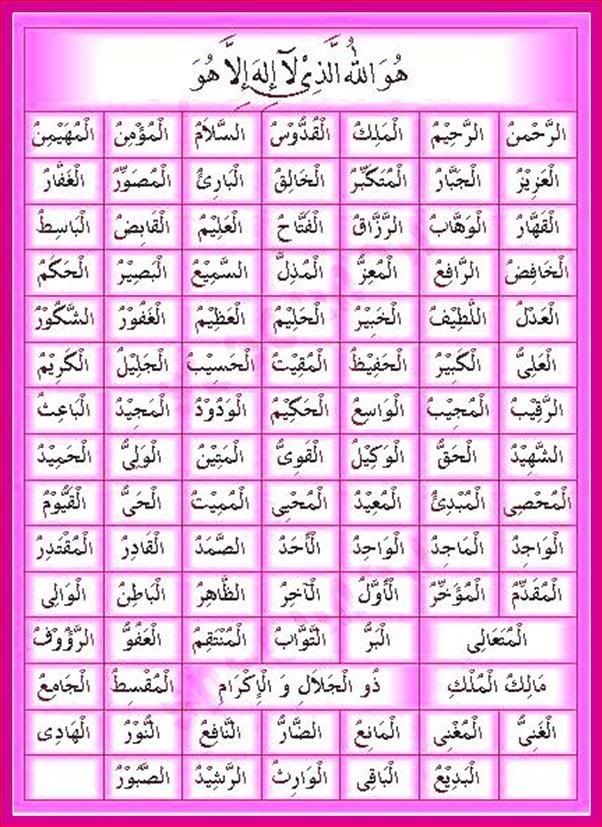 هُوَ اللهُ الَّذِيْ لَآ إِلٰهَ إِلاَّ هُوَ
الرَّحْمٰنُ الرَّحِيْمُ الْمَلِكُ الْقُدُّوْسُ السَّلاَمُ الْمُؤْمِنُ الْمُهَيْمِنُ
الْعَزِيْزُ الْجَبَّارُ الْمُتَكَبِّرُ الْخَالِقُ الْبَارِئُ الْمُصَوِّرُ الْغَفَّارُ
الْقَهَّارُ الْوَهَّابُ الرَّزَّاقُ الْفَتَّاحُ الْعَلِيْمُ الْقَابِضُ الْبَاسِطُ
الْخَافِضُ الرَّافِعُ الْمُعِزُّ الْمُذِلُّ السَّمِيْعُ الْبَصِيْرُ الْحَكَمُ
الْعَدْلُ اللَّطِيْفُ الْخَبِيْرُ الْحَلِيْمُ الْعَظِيْمُ الْغَفُوْرُ الشَّكُوْرُ
الْعَلِىُّ الْكَبِيْرُ الْحَفِيْظُ الْمُقِيْتُ الْحَسِيْبُ الْجَلِيْلُ الْكَرِيْمُ
الرَّقِيْبُ الْمُجِيْبُ الْوَاسِعُ الْحَكِيْمُ الْوَدُوْدُ الْمَجِيْدُ الْبَاعِثُ
الشَّهِيْدُ الْحَقُّ الْوَكِيْلُ الْقَوِىُّ الْمَتِيْنُ الْوَلِىُّ الْحَمِيْدُ
الْمُحْصِى الْمُبْدِئُ الْمُعِيْدُ الْمُحْيِى الْمُمِيْتُ الْحَىُّ الْقَيُّوْمُ
الْوَاجِدُ الْمَاجِدُ الْوَاحِدُ الْأَحَدُ الصَّمَدُ الْقَادِرُ الْمُقْتَدِرُ
الْمُقَدِّمُ الْمُؤَخِّرُ الْأَوَّلُ الْآخِرُ الظَّاهِرُ الْبَاطِنُ الْوَالِى
الْمُتَعَالِى الْبَرُّ التَّوَّابُ الْمُنْتَقِمُ الْعَفُوُّ الرَّؤُوْفُ
مَالِكُ الْمُلْكِ ذُو الْجَلَالِ وَ الْإِكْرَامِ الْمُقْسِطُ الْجَامِعُ
الْغَنِىُّ الْمُغْنِى الْمَانِعُ الضَّارُّ النَّافِعُ النُّوْرُ الْهَادِى
الْبَدِيْعُ الْبَاقِى الْوَارِثُ الرَّشِيْدُ الصَّبُوْرُ